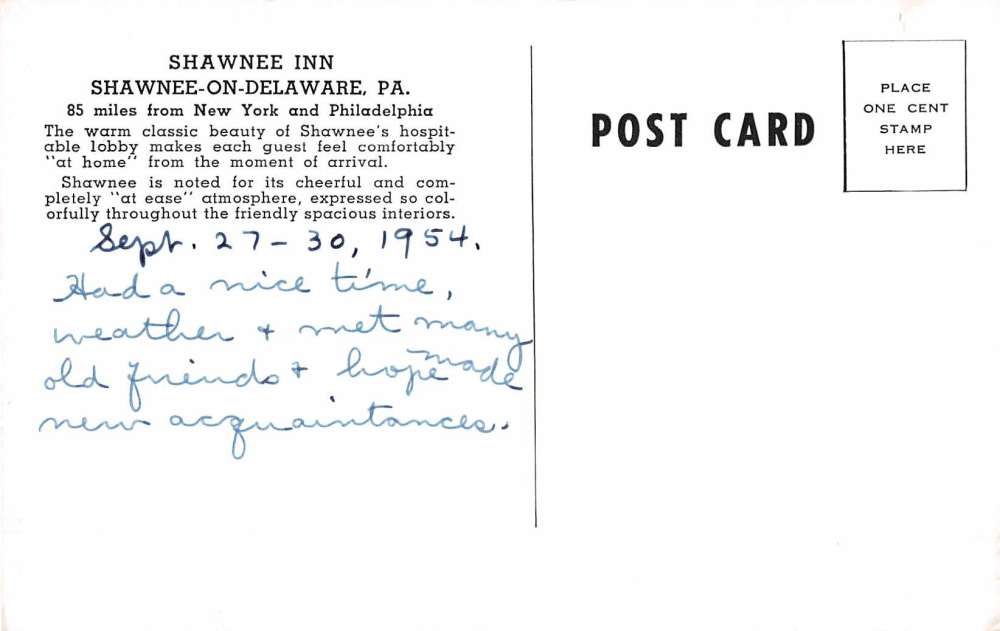 SHAWNEE INN
SHAWNEE-ON-DELAWARE, PA.
85 miles from New York and Philadelphia
The warm classic beauty of Shawnee's hospit-
able lobby makes each guest feel comfortably
"at home" from the moment of arrival.
Shawnee is noted for its cheerful and com-
pletely "at ease" atmosphere, expressed so col-
orfully throughout the friendly spacious interiors.
Sept. 27-30, 1954.
Had a nice time,
weather + met many
old friends + hope made
new acquaintances.
POST CARD
PLACE
ONE CENT
STAMP
HERE